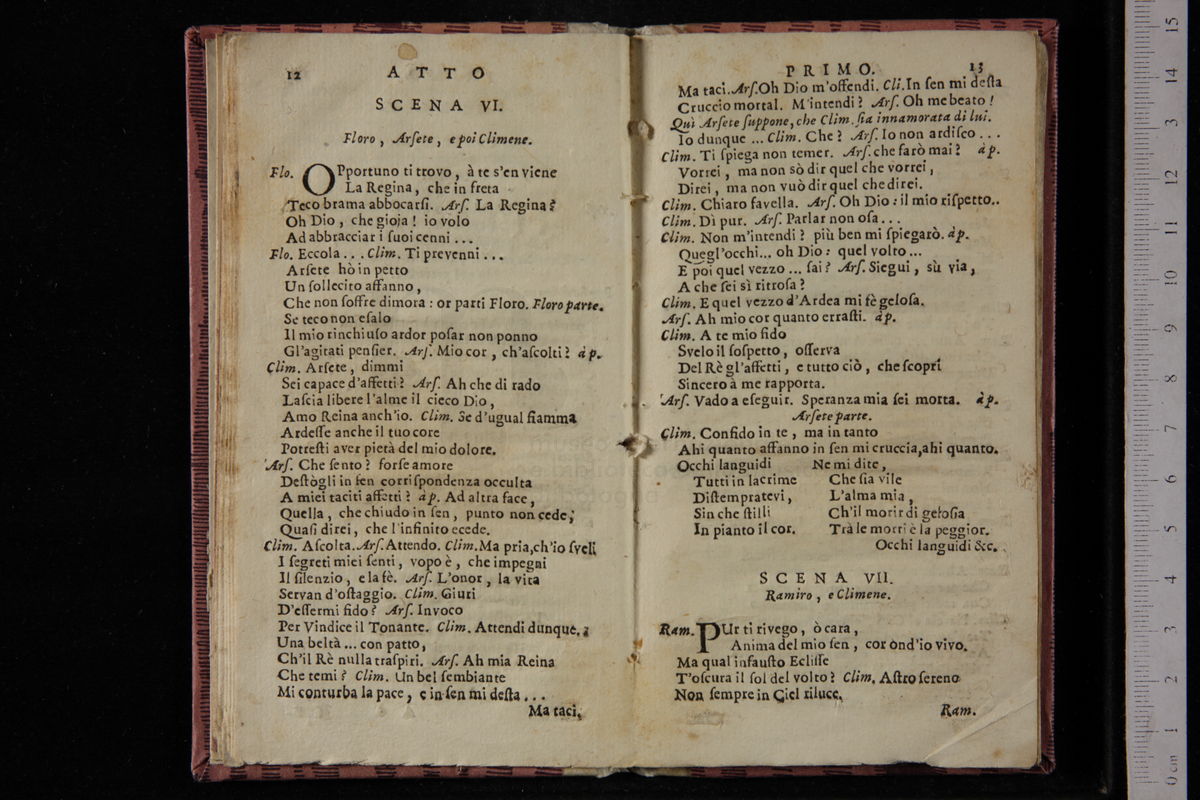 12 ATTO
SCENA VI.
Floro, Arſete, e poi Climene.
Flo. OPportuno ti trovo, à te s'en viene
La Regina, che in freta
Teco brama abboccarſi. Arſ. La Regina?
Oh Dio, che gioja! io volo
Ad abbracciar i ſuoi cenni...
Flo. Eccola... Clim. Ti prevenni...
Arſete hò in petto
Un ſollecito affanno,
Che non ſoffre dimora: or parti Floro. Floro parte.
Se teco non eſalo
Il mio rinchiuſo ardor poſar non ponno
Gl'agitati penſier. Arſ. Mio cor, ch'aſcolti? àp.
Clim. Arſete, dimmi
Sei capace d'affetti? Arſ. Ah che di rado
Laſcia libere l'alme il cieco Dio,
Amo Reina anch'io. Clim. Se d'ugual fiamma
Ardeſſe anche il tuo core
Potreſti aver pietà del mio dolore.
Arſ. Che ſento? forſe amore
Deſtògli in ſen corriſpondenza occulta
A miei taciti affetti? àp. Ad altra face,
Quella, che chiudo in ſen, punto non cede;
Quaſi direi, che l'infinito ecede.
Clim. Aſcolta. Arſ. Attendo. Clim. Ma pria, ch'io ſveli
I ſegreti miei ſenti, vopo è, che impegni
Il ſilenzio, e la fè. Arſ. L'onor, la vita
Servan d'oſtaggio. Clim. Giuri
D'eſſermi fido? Arſ. Invoco
Per Vindice il Tonante. Clim. Attendi dunque.
Una beltà... con patto,
Ch'il Rè nulla traſpiri. Arſ. Ah mia Reina
Che temi? Clim. Un bel ſembiante
Mi conturba la pace, e in ſen mi deſta...
Ma taci,
PRIMO. 13
Ma taci. Arſ. Oh Dio m'offendi. Cli. In ſen mi deſta
Cruccio mortal. M'intendi? Arſ. Oh me beato!
Quì Arſete ſuppone, che Clim. ſia innamorata di lui.
Io dunque... Clim. Che? Arſ. Io non ardiſco...
Clim. Ti ſpiega non temer. Arſ. che farò mai? àp.
Vorrei, ma non sò dir quel che vorrei,
Direi, ma non vuò dir quel che direi.
Clim. Chiaro favella. Arſ. Oh Dio: il mio riſpetto..
Clim. Dì pur. Arſ. Parlar non oſa...
Clim. Non m'intendi? più ben mi ſpiegarò. àp.
Quegl'occhi... oh Dio: quel volto...
E poi quel vezzo... ſai? Arſ. Siegui, sù via,
A che ſei sì ritroſa?
Clim. E quel vezzo d'Ardea mi fè geloſa.
Arſ. Ah mio cor quanto erraſti. àp.
Clim. A te mio fido
Svelo il ſoſpetto, oſſerva
Del Rè gl'affetti, e tutto ciò, che ſcopri
Sincero à me rapporta.
Arſ. Vado a eſeguir. Speranza mia ſei morta. àp.
Arſete parte.
Clim. Confido in te, ma in tanto
Ahi quanto affanno in ſen mi cruccia, ahi quanto.
Occhi languidi
Tutti in lacrime
Diſtempratevi,
Sin che ſtilli
In pianto il cor.
Ne mi dite,
Che ſia vile
L'alma mia,
Ch'il morir di geloſia
Trà le morti è la peggior.
Occhi languidi &c.
SCENA VII.
Ramiro, e Climene.
Ram. PUr ti rivego, ò cara,
Anima del mio ſen, cor ond'io vivo.
Ma qual infauſto Ecliſſe
T'oſcura il ſol del volto? Clim. Aſtro ſereno
Non ſempre in Ciel riluce.
Ram.